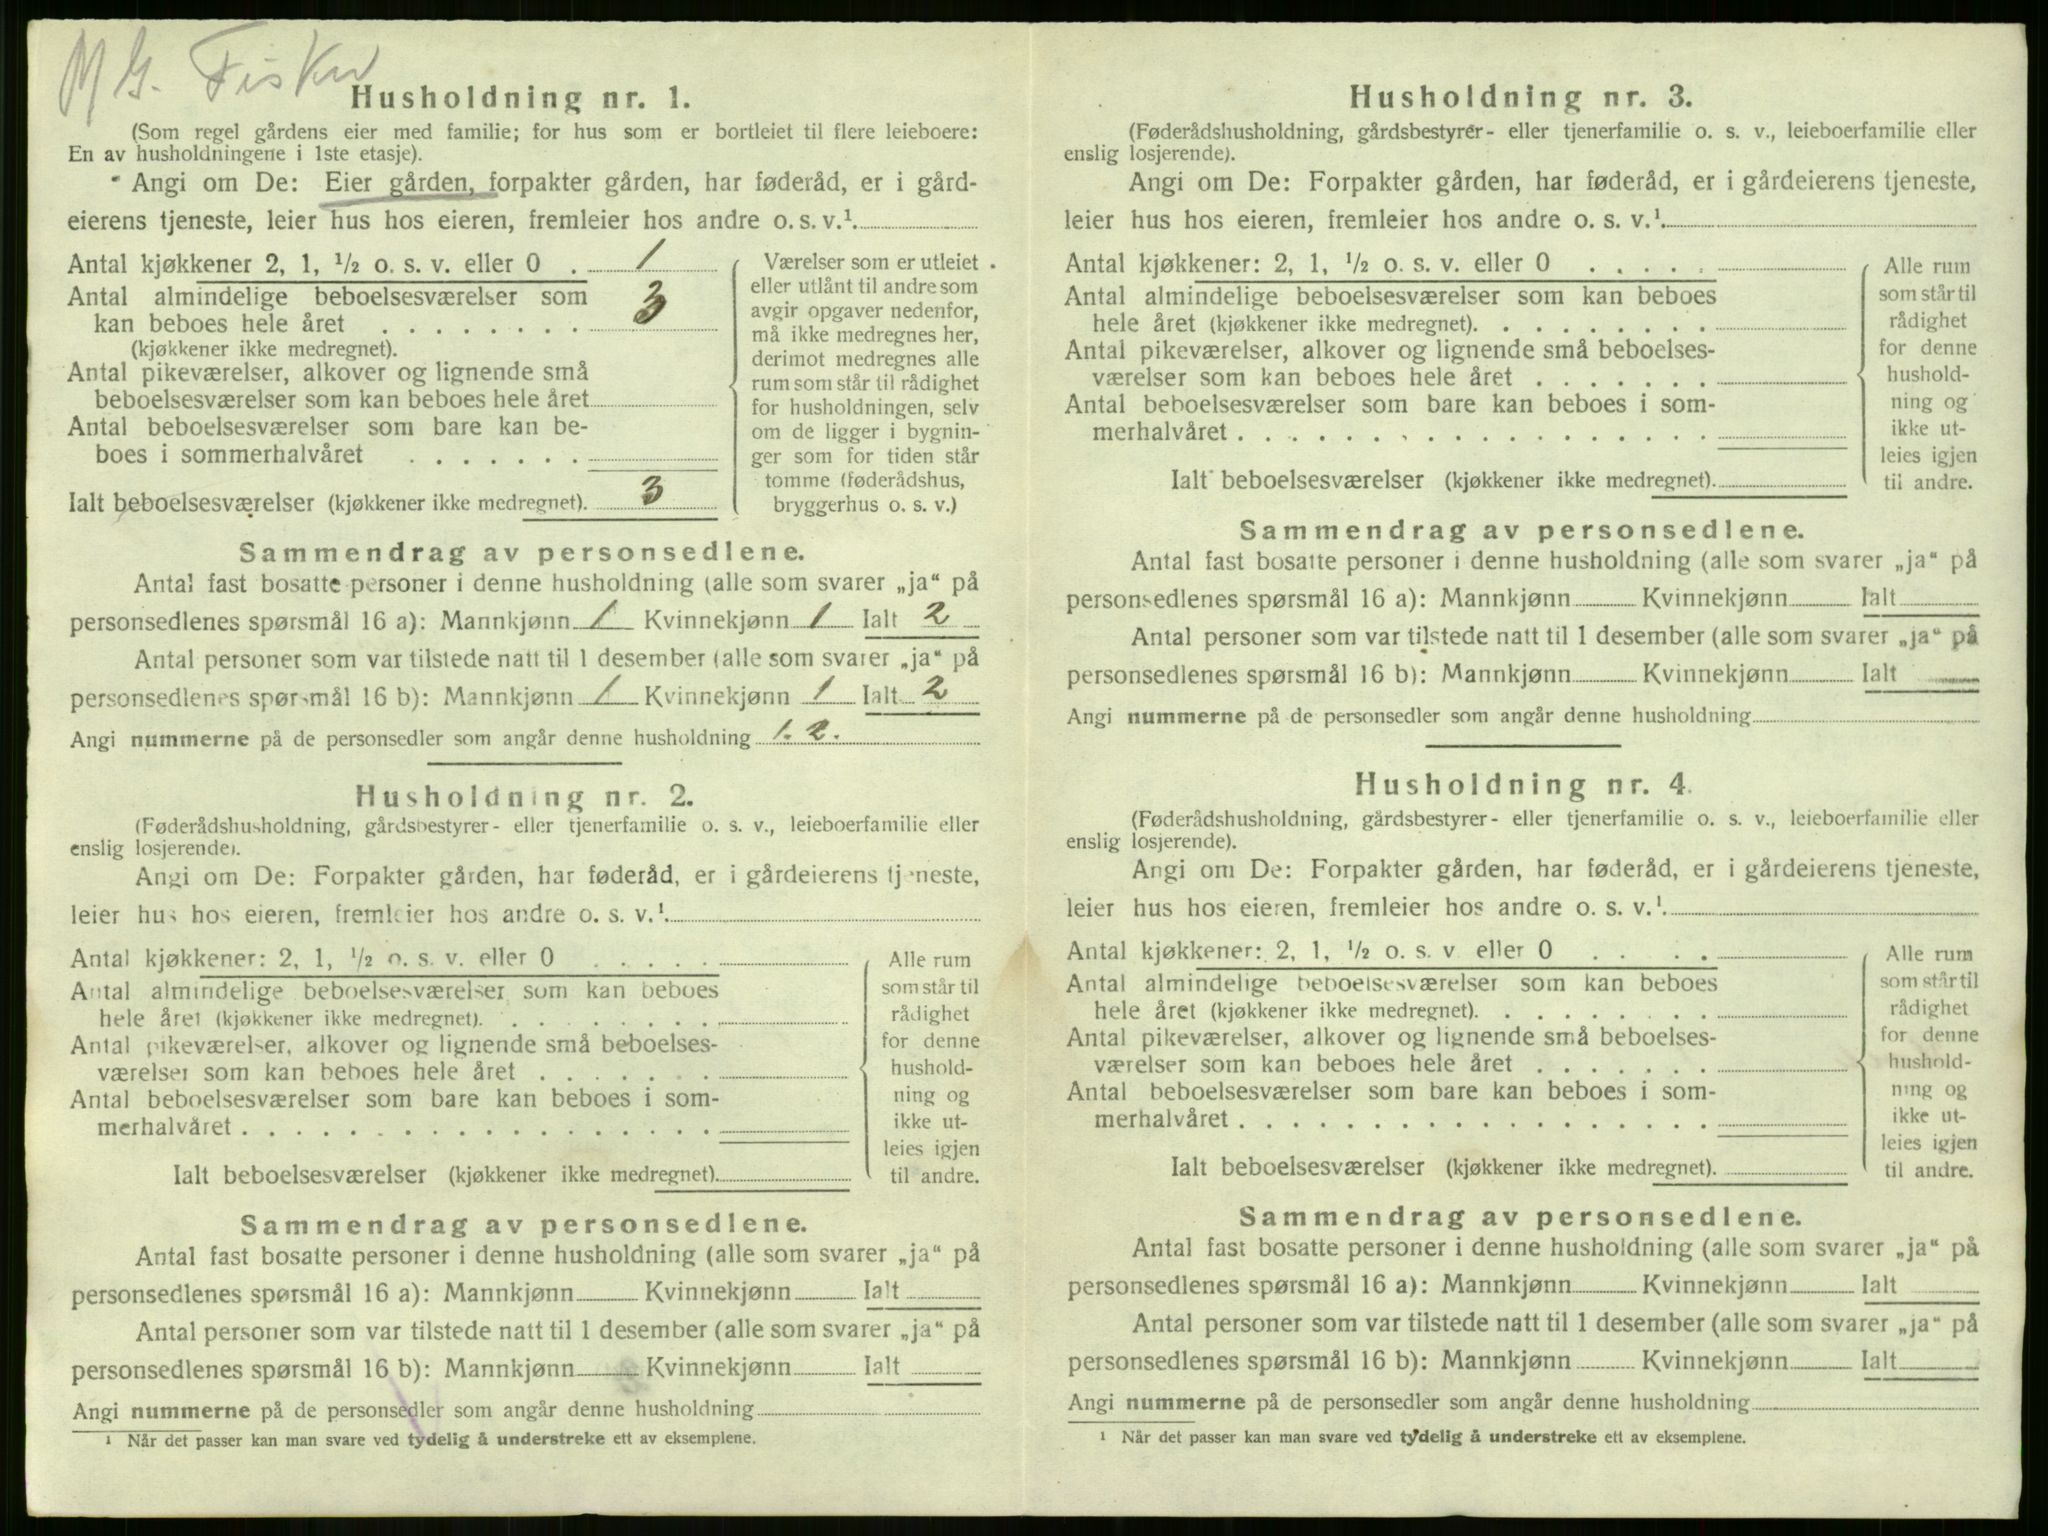 M G. Fisker
Husholdning nr. 1.
(Som regel gårdens eier med familie; for hus som er bortleiet til flere leieboere:
En av husholdningene i 1ste etasje).
Angi om De: Eier gården, forpakter gården, har føderåd, er i gård-
eierens tjeneste, leier hus hos eieren, fremleier hos andre o. s. v.¹
Antal kjøkkener 2, 1, ½ o. s. v. eller 0 . 1
Antal almindelige beboelsesværelser som
kan beboes hele året . . . . . . . . 3
(kjøkkener ikke medregnet).
Antal pikeværelser, alkover og lignende små
beboelsesværelser som kan beboes hele året
Antal beboelsesværelser som bare kan be-
boes i sommerhalvåret . . . . . . .
Ialt beboelsesværelser (kjøkkener ikke medregnet). 3
Værelser som er utleiet
eller utlånt til andre som
avgir opgaver nedenfor,
må ikke medregnes her,
derimot medregnes alle
rum som står til rådighet
for husholdningen, selv
om de ligger i bygnin-
ger som for tiden står
tomme (føderådshus,
bryggerhus o. s. v.)
Sammendrag av personsedlene.
Antal fast bosatte personer i denne husholdning (alle som svarer „ja“ på
personsedlenes spørsmål 16 a): Mannkjønn 1 Kvinnekjønn 1 Ialt 2
Antal personer som var tilstede natt til 1 desember (alle som svarer „ja“ på
personsedlenes spørsmål 16 b): Mannkjønn 1 Kvinnekjønn 1 Ialt 2
Angi nummerne på de personsedler som angår denne husholdning 1. 2.
Husholdning nr. 2.
(Føderådshusholdning, gårdsbestyrer- eller tjenerfamilie o. s. v., leieboerfamilie eller
enslig losjerende).
Angi om De: Forpakter gården, har føderåd, er i gårdeierens tjeneste,
leier hus hos eieren, fremleier hos andre o. s. v.¹
Antal kjøkkener: 2, 1, ½ o. s. v. eller 0 . . . . .
Antal almindelige beboelsesværelser som kan beboes
hele året (kjøkkener ikke medregnet). . . . . . . . .
Antal pikeværelser, alkover og lignende små beboelses-
værelser som kan beboes hele året . . . . . . .
Antal beboelsesværelser som bare kan beboes i som-
merhalvåret . . . . . . . . . . . . . . . . . .
Ialt beboelsesværelser (kjøkkener ikke medregnet).
Alle rum
som står til
rådighet
for denne
hushold-
ning og
ikke ut-
leies igjen
til andre.
Sammendrag av personsedlene.
Antal fast bosatte personer i denne husholdning (alle som svarer „ja“ på
personsedlenes spørsmål 16 a): Mannkjønn Kvinnekjønn Ialt
Antal personer som var tilstede natt til 1 desember (alle som svarer „ja“ på
personsedlenes spørsmål 16 b): Mannkjønn Kvinnekjønn Ialt
Angi nummerne på de personsedler som angår denne husholdning
¹ Når det passer kan man svare ved tydelig å understreke ett av eksemplene.
Husholdning nr. 3.
(Føderådshusholdning, gårdsbestyrer- eller tjenerfamilie o. s. v., leieboerfamilie eller
enslig losjerende).
Angi om De: Forpakter gården, har føderåd, er i gårdeierens tjeneste,
leier hus hos eieren, fremleier hos andre o. s. v.¹
Antal kjøkkener: 2, 1, ½ o. s. v. eller 0 . . . . .
Antal almindelige beboelsesværelser som kan beboes
hele året (kjøkkener ikke medregnet). . . . . . . . .
Antal pikeværelser, alkover og lignende små beboelses-
værelser som kan beboes hele året . . . . . . .
Antal beboelsesværelser som bare kan beboes i som-
merhalvåret . . . . . . . . . . . . . . . . . .
Ialt beboelsesværelser (kjøkkener ikke medregnet).
Alle rum
som står til
rådighet
for denne
hushold-
ning og
ikke ut-
leies igjen
til andre.
Sammendrag av personsedlene.
Antal fast bosatte personer i denne husholdning (alle som svarer „ja“ på
personsedlenes spørsmål 16 a): Mannkjønn Kvinnekjønn Ialt
Antal personer som var tilstede natt til 1 desember (alle som svarer „ja“ på
personsedlenes spørsmål 16 b): Mannkjønn Kvinnekjønn Ialt
Angi nummerne på de personsedler som angår denne husholdning
Husholdning nr. 4.
(Føderådshusholdning, gårdsbestyrer- eller tjenerfamilie o. s. v., leieboerfamilie eller
enslig losjerende).
Angi om De: Forpakter gården, har føderåd, er i gårdeierens tjeneste,
leier hus hos eieren, fremleier hos andre o. s. v.¹
Antal kjøkkener: 2, 1, ½ o. s. v eller 0 . . . . .
Antal almindelige beboelsesværelser som kan beboes
hele året (kjøkkener ikke medregnet). . . . . . . . .
Antal pikeværelser, alkover og lignende små beboelses-
værelser som kan beboes hele året . . . . . . .
Antal beboelsesværelser som bare kan beboes i som-
merhalvåret . . . . . . . . . . . . . . . . . .
Ialt beboelsesværelser (kjøkkener ikke medregnet).
Alle rum
som står til
rådighet
for denne
hushold-
ning og
ikke ut-
leies igjen
til andre.
Sammendrag av personsedlene.
Antal fast bosatte personer i denne husholdning (alle som svarer „ja“ på
personsedlenes spørsmål 16 a): Mannkjønn Kvinnekjønn Ialt
Antal personer som var tilstede natt til 1 desember (alle som svarer „ja“ på
personsedlenes spørsmål 16 b): Mannkjønn Kvinnekjønn Ialt
Angi nummerne på de personsedler som angår denne husholdning
¹ Når det passer kan man svare ved tydelig å understreke ett av eksemplene.